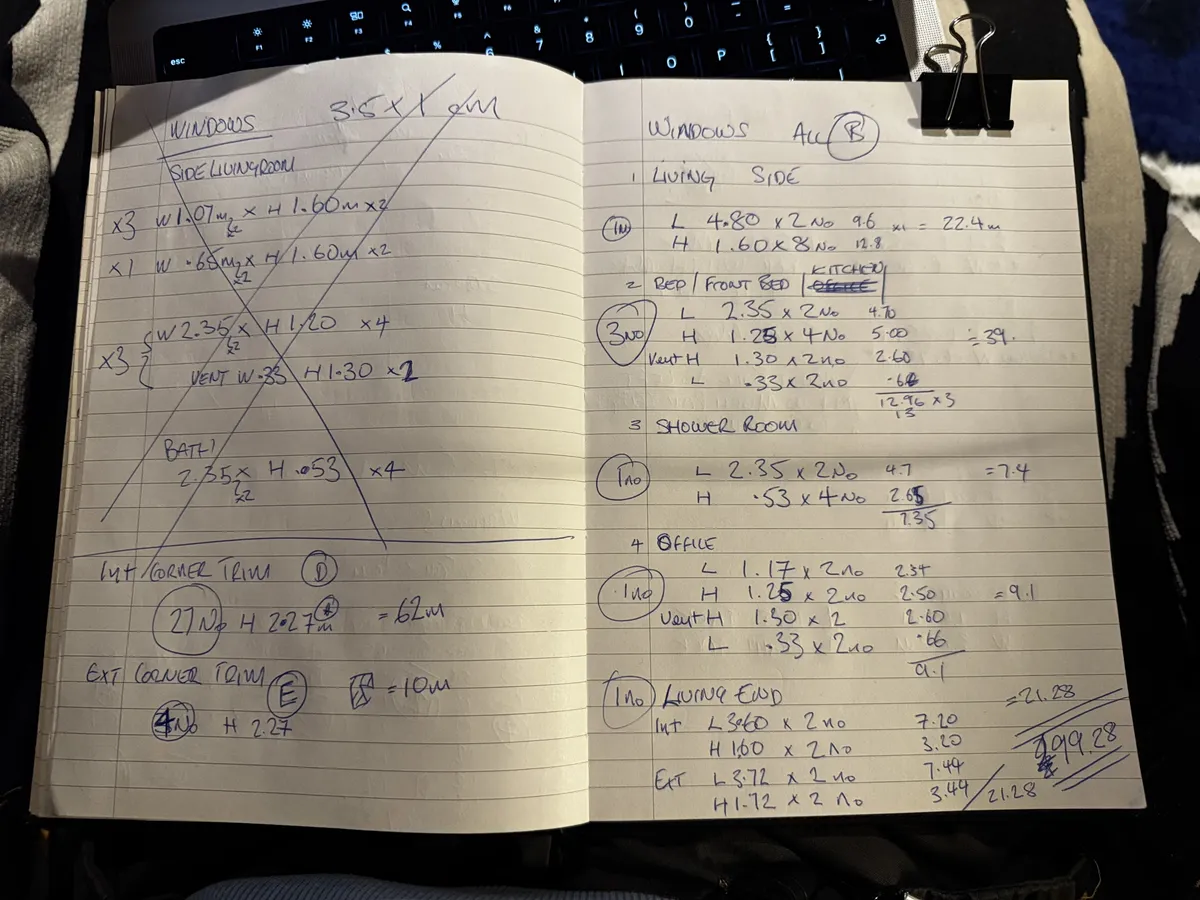 esc
F1
F2
F3
F4
F5
F6
%
^
6
&
7
*
8
(
9
)
0
-
=
I
O
P
{
[
}
]
WINDOWS 3.5 x 1 M
SIDE LIVINGROOM
x3 W 1.07m x H 1.60m x2
x2
x1 W .65m x H 1.60m x2
x2
x3 { W 2.35 x H 1.20 x4
x2
VENT W .33 H 1.30 x2
BATH?
2.35 x H .53 x4
x2
Int CORNER TRIM D
27No H 2.27m = 62m
EXT CORNER TRIM E = 10m
4No H 2.27
WINDOWS ALL B
1 LIVING SIDE
1No L 4.80 x 2No 9.6 x1 = 22.4m
H 1.60 x 8No 12.8
2 BED / FRONT BED / KITCHEN
OFFICE
L 2.35 x 2No 4.70
3No H 1.25 x 4No 5.00 = 39.
Vent H 1.30 x 2no 2.60
L .33 x 2no .66
12.96 x 3
13
3 SHOWER ROOM
1no L 2.35 x 2No 4.7 = 7.4
H .53 x 4No 2.65
7.35
4 OFFICE
L 1.17 x 2no 2.34
1no H 1.25 x 2no 2.50 = 9.1
Vent H 1.30 x 2 2.60
L .33 x 2no .66
9.1
1no LIVING END = 21.28
Int L 3.60 x 2no 7.20
H 1.60 x 2no 3.20 99.28
Ext L 3.72 x 2no 7.44
H 1.72 x 2no 3.44 / 21.28